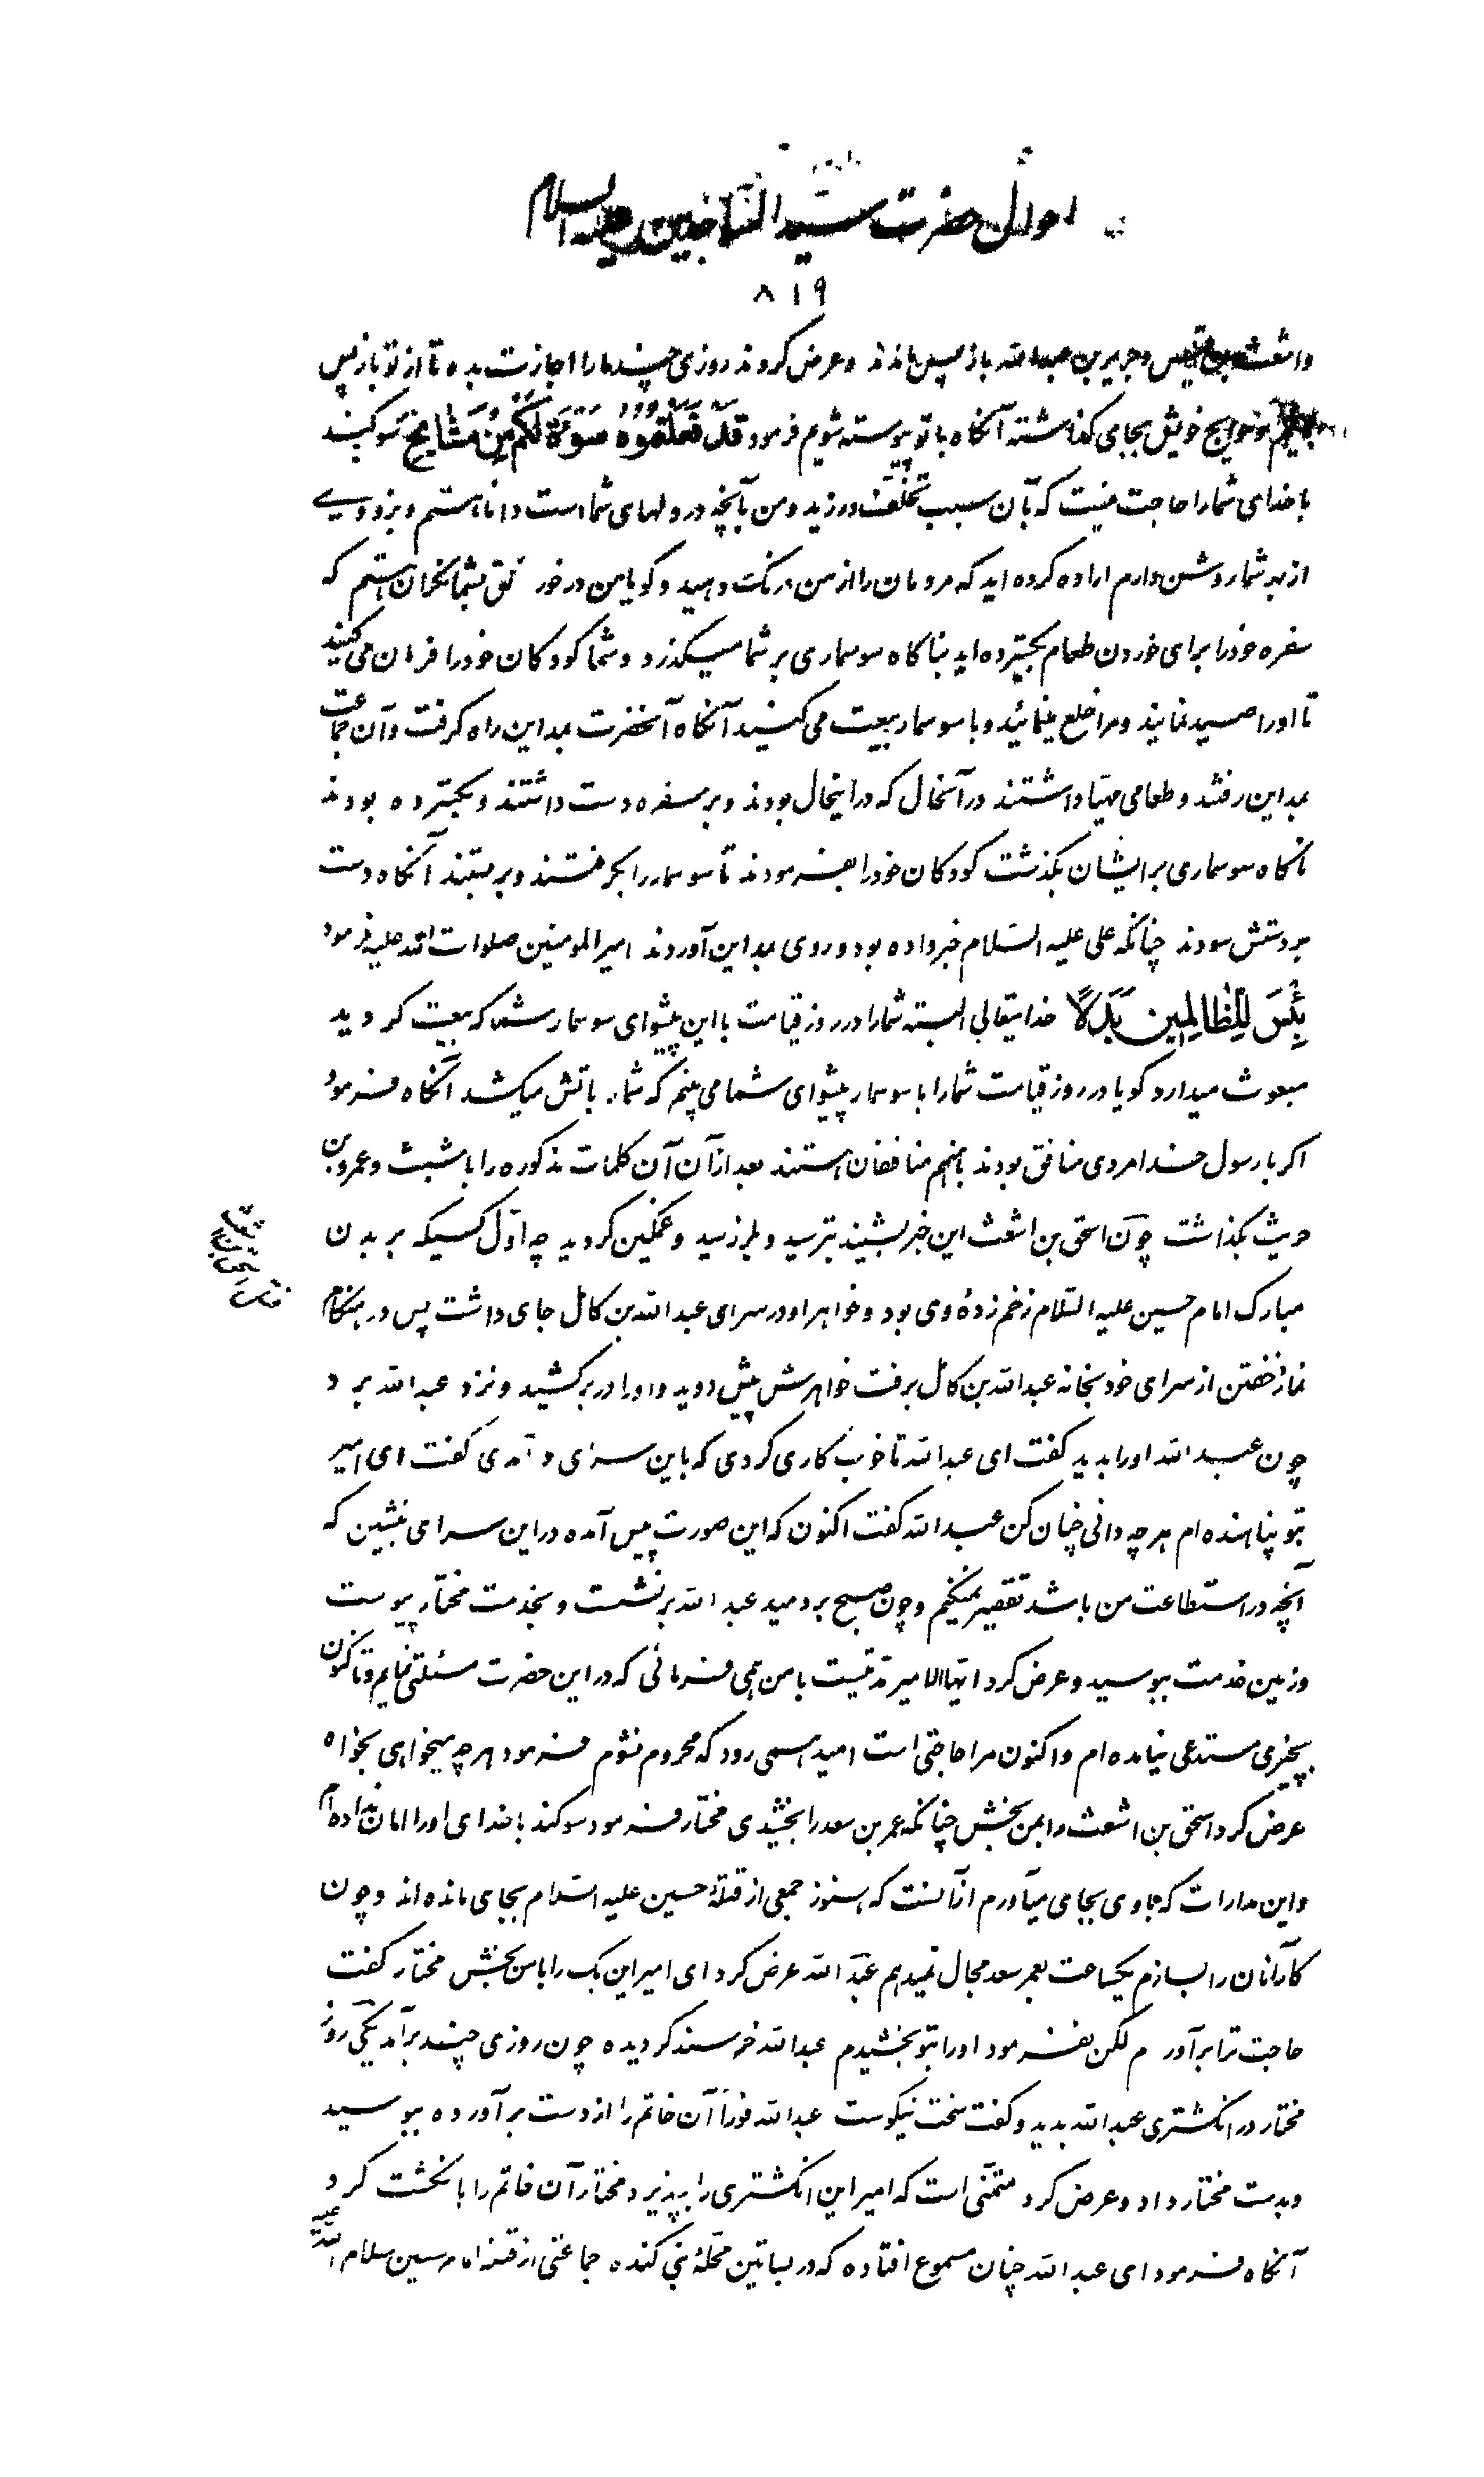 احوال حضرت سید الساجدین علیه السلام
۸۱۹
واشعث بن قیس و جریر بن عبدالله باز پس ماندند و عرض کردند روزی چند ما را اجازت بده تا از تو باز پس
حوایج خویش بجای گذاشته آنگاه با تو پیوسته شویم فرمود قد فعلتموه سوءة لکم من مشایخ سوگند
با خدای شما را حاجت نیست که بآن سبب تخلف ورزید و من بآنچه در دلهای شما است دانا هستم و بزودی
از بهر شما روشن دارم اراده کرده اید که مردمان را از من درنگ دهید و گویا من در خورنق بشما نگران هستم که
سفره خود را برای خوردن طعام بگسترده اید بناگاه سوسماری بر شما میگذرد و شما کودکان خود را فرمان می کنید
تا او را صید نمایند و مرا خلع مینمائید و با سوسمار بیعت می کنید آنگاه آنحضرت بمداین راه گرفت و آن جماعت
بمداین رفتند و طعامی مهیا داشتند در آنحال که در اینحال بودند و بر سفره دست داشتند و بگسترده بودند
ناگاه سوسماری بر ایشان بگذشت کودکان خود را بفرمودند تا سوسمار را بگرفتند و بر بستند آنگاه دست
بر دستش سودند چنانکه علی علیه السلام خبر داده بود و روی بمداین آوردند امیر المومنین صلوات الله علیه فرمود
بِئْسَ لِلظّالِمینَ بَدَلًا خدایتعالی البته شما را در روز قیامت با این پیشوای سوسمار شما که بیعت کردید
مبعوث میدارد گویا در روز قیامت شما را با سوسمار پیشوای شما می بینم که شما را بآتش میکشد آنگاه فرمود
اگر با رسول خدا مردی منافق بودند با منهم منافقان هستند بعد از آن آن کلمات مذکوره را با شبث و عمرو بن
حریث بگذاشت چون اسحق بن اشعث این خبر بشنید بترسید و بلرزید و غمگین گردید چه اول کسیکه بر بدن
مبارک امام حسین علیه السلام زخم زده وی بود و خواهر او در سرای عبدالله بن کامل جای داشت پس در هنگام
نماز خفتن از سرای خود بخانه عبدالله بن کامل برفت خواهرش پیش دوید و او را در بر کشید و نزد عبدالله برد
چون عبدالله او را بدید گفت ای عبدالله تا خوب کاری کردی که باین سرای در آمدی گفت ای امیر
بتو پناهنده ام هر چه دانی چنان کن عبدالله گفت اکنون که این صورت پیش آمده در این سرا می نشین که
آنچه در استطاعت من باشد تقصیر نمیکنم و چون صبح بردمید عبدالله برنشست و بخدمت مختار پیوست
و زمین خدمت ببوسید و عرض کرد ایها الامیر مدتیست با من همی فرمائی که در این حضرت مسئلتی نمایم و تاکنون
بچیزی مستدعی نیامده ام و اکنون مرا حاجتی است امید همی رود که محروم نشوم فرمود هر چه میخواهی بخواه
عرض کرد اسحق بن اشعث را بمن بخش چنانکه عمر بن سعد را بخشیدی مختار فرمود سوگند با خدای او را امان نداده ام
و این مدارات که با وی بجا می آورم از آنست که هنوز جمعی از قتله حسین علیه السلام بجای مانده اند و چون
کار آنان را بسازم یکساعت بعمر سعد مجال نمیدهم عبدالله عرض کرد ای امیر این یک را با من بخش مختار گفت
حاجت ترا بر آوردم لکن بفرمود او را بتو بخشیدم عبدالله خرسند گردیده چون روزی چند بر آمد یکی روز
مختار در انگشتری عبدالله بدید و گفت سخت نیکوست عبدالله فورا آن خاتم را از دست بر آورده ببوسید
و بدست مختار داد و عرض کرد متمنی است که امیر این انگشتری را بپذیرد مختار آن خاتم را بانگشت کرد
آنگاه فرمود ای عبدالله چنان مسموع افتاده که در بساتین محله بنی کنده جماعتی از قتله امام حسین سلام الله علیه